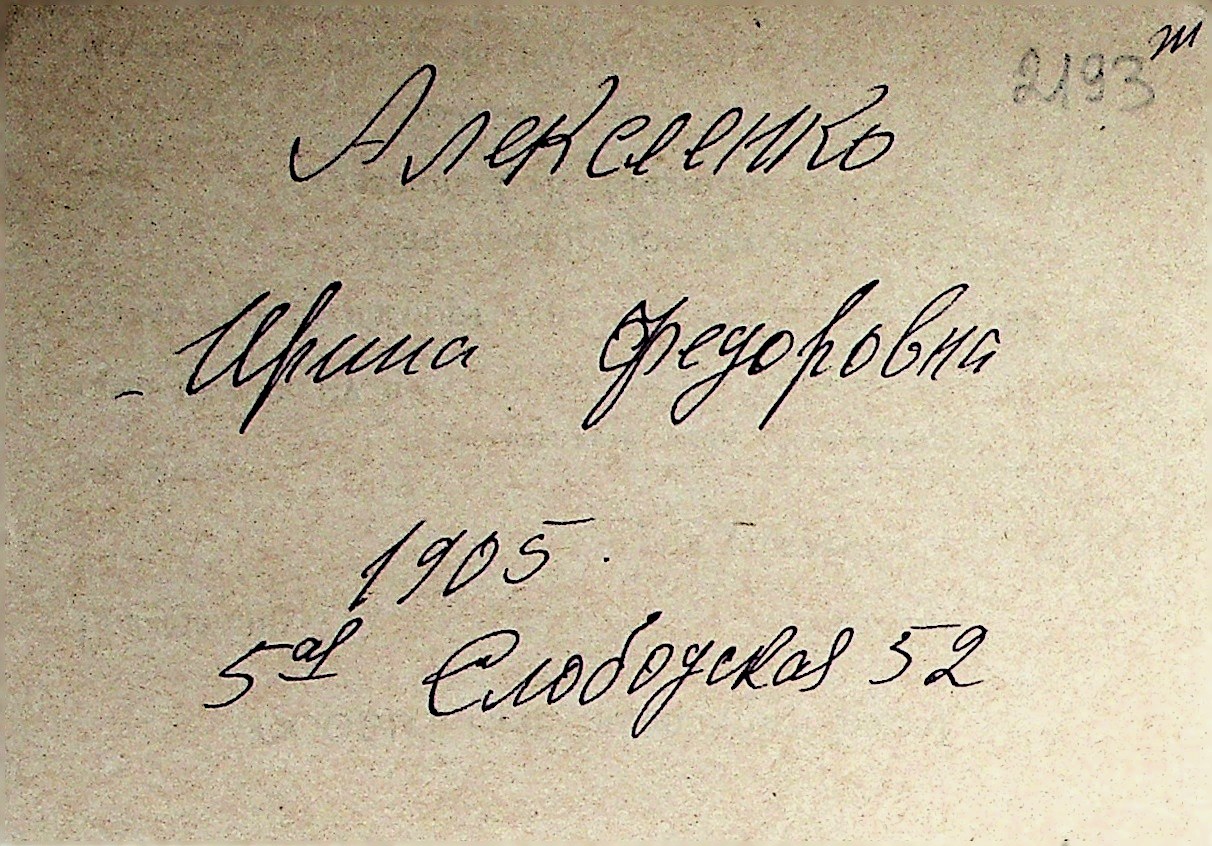 2193 т
Алексеенко
Ирина Федоровна
1905.
5ая Слободская 52